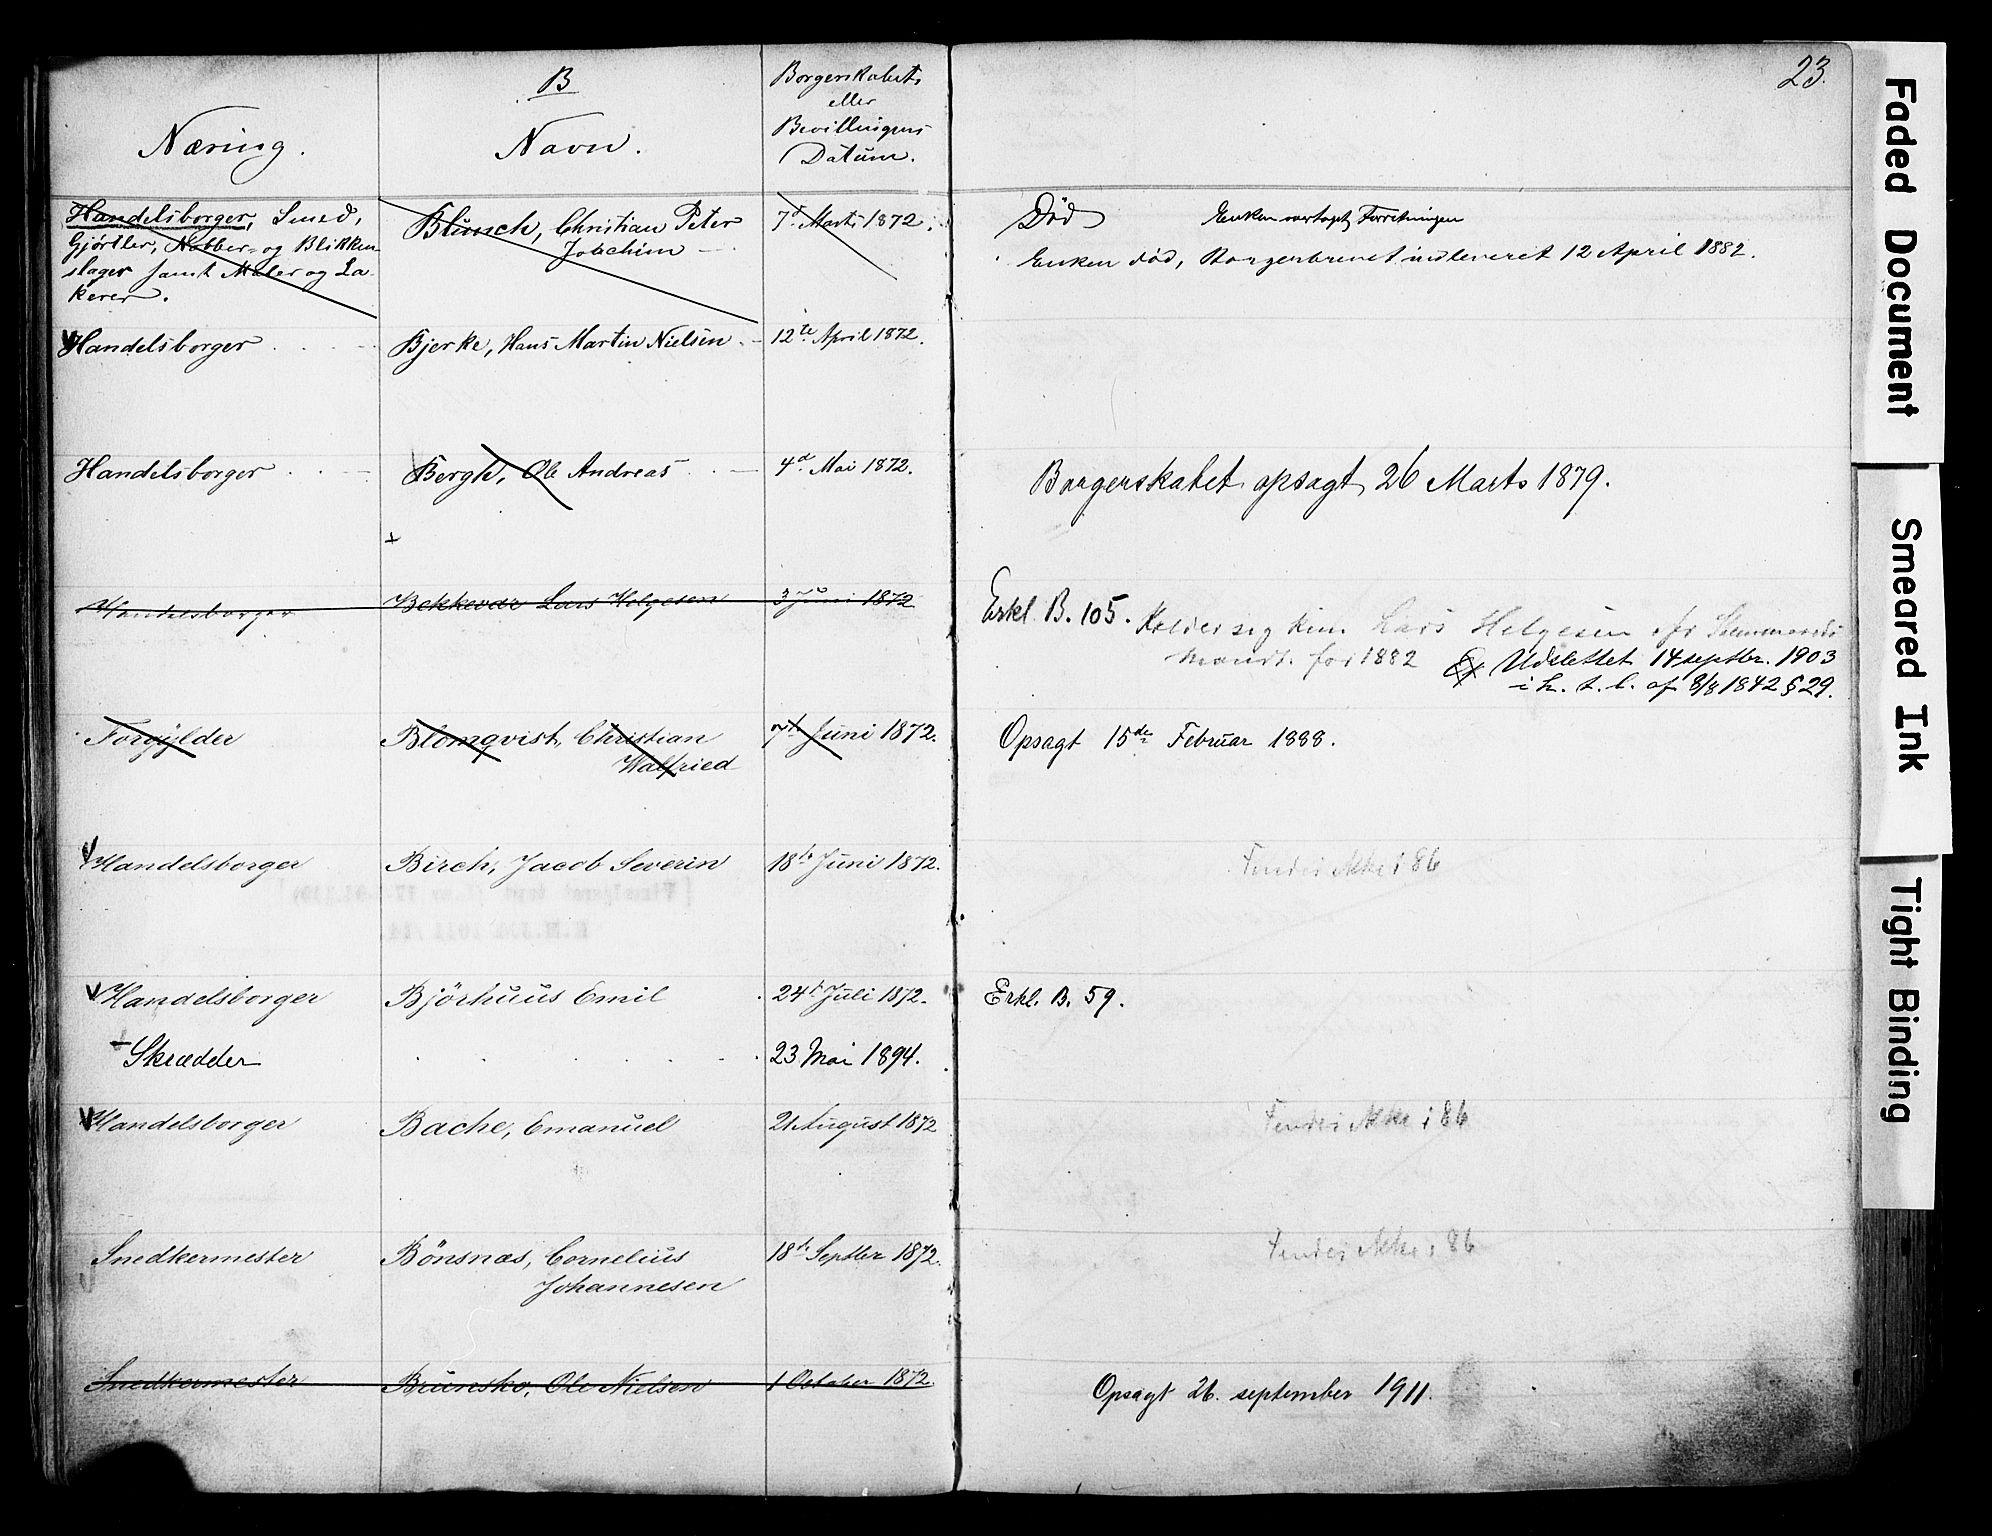 23.
B
Næring.
Navn.
Borgerskabets
eller
Bevillingens
Datum.
Handelsborger, Smed,
Gjørtler, Kobber- og Blikken-
slager samt Maler og La-
kerer.
Blunch, Christian Peter
Joachim
7d Marts 1872.
Død Enken overtaget Forretningen
Enken død, Borgerbrevet indleveret 12 April 1882.
Handelsborger
Bjerke, Hans Martin Nielsen
12te April 1872.
Handelsborger
Bergh, Ole Andreas
4d. Mai 1872.
Borgerskabet opsagt 26 Marts 1879.
+
Handelsborger
Bekkevar Lars Helgesen
3 Juni 1872
Erkl. B. 105. Kalder sig kun Lars Helgesen
mandt. for 1882
Udslettet 14 septbr. 1903
i h. t. l. af 8/8 1842 § 29.
Forgylder
Blomqvist, Christian
Walfried
7d. Juni 1872.
Opsagt 15de Februar 1888.
Handelsborger
Birch, Jacob Severin
18de Juni 1872.
Findes ikke i 86
Handelsborger
Björhuus Emil
24d Juli 1872.
Erkl. B. 59.
+ Skrædder
23 Mai 1894.
Handelsborger
Bache, Emanuel
21 August 1872
Findes ikke i 86
Snedkermester
Bönsnæs, Cornelius
Johannesen
18de Septbr 1872.
Findes ikke i 86
Snedkermester
Brunsko, Ole Nielsen
1 October 1872.
Opsagt 26. september 1911.
Faded Document
Smeared Ink
Tight Binding